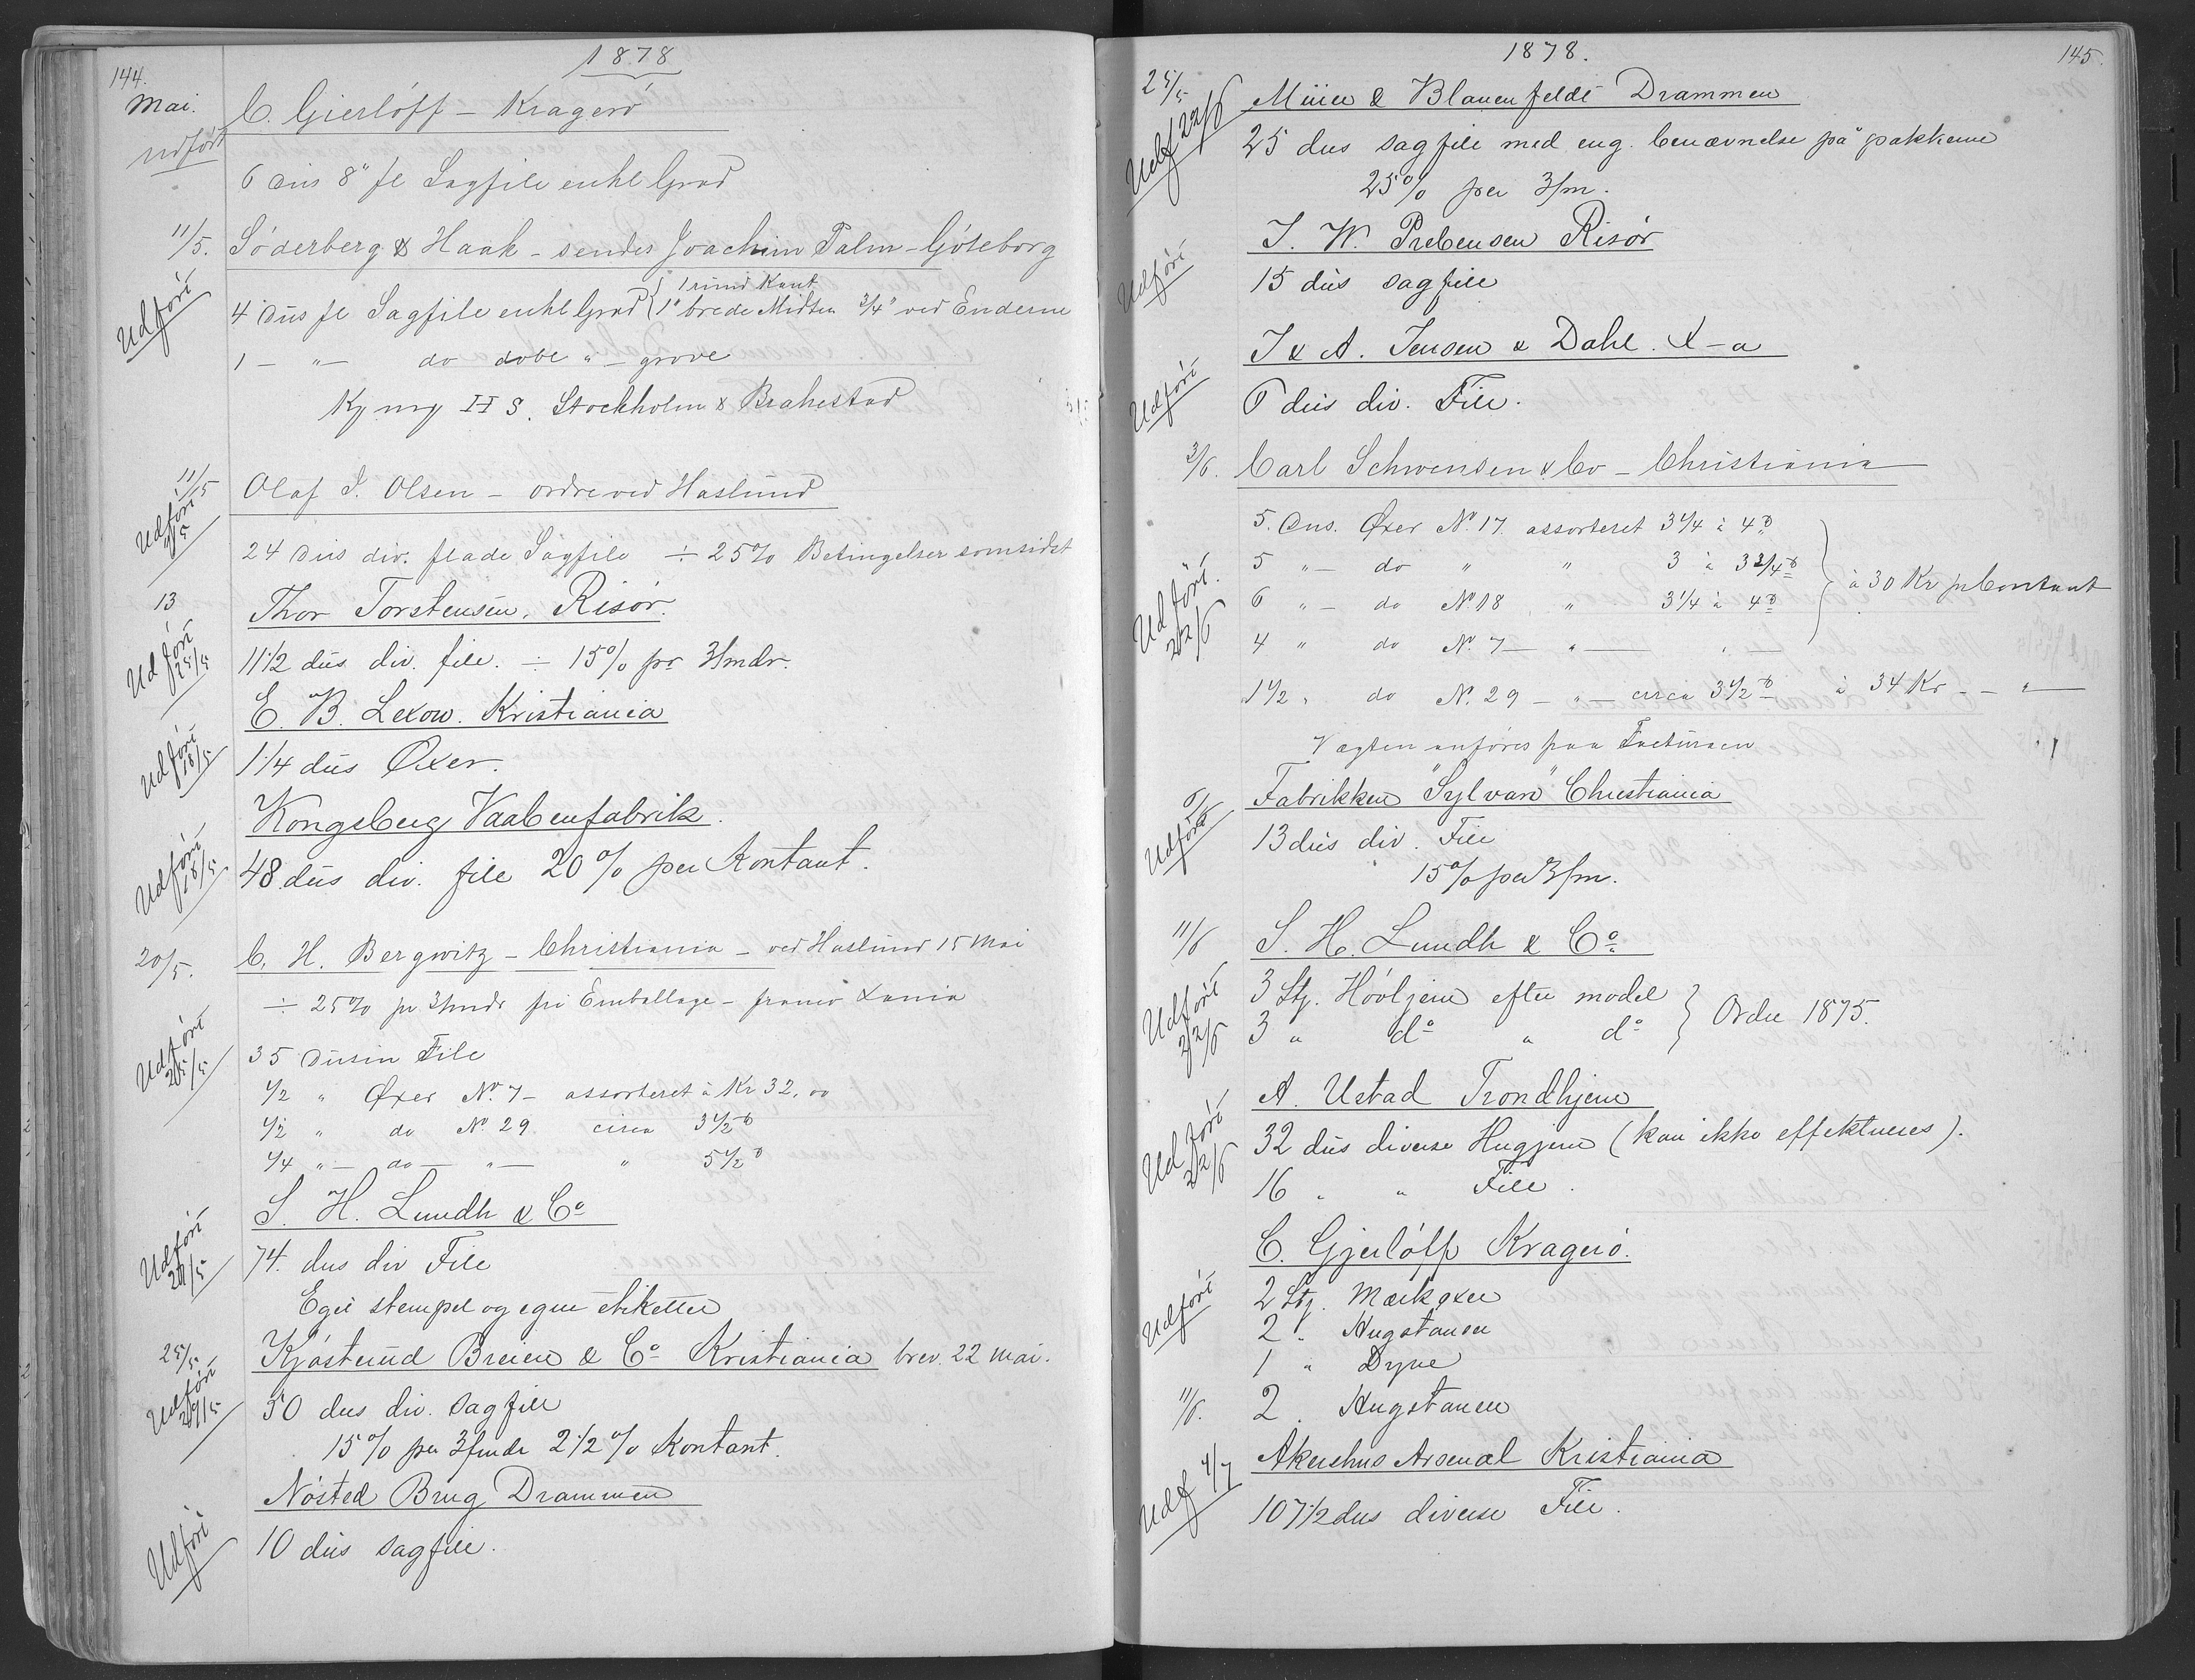 144.
1878
Mai.
C. Gierlöff – Kragerö
udført
6 dus 8" fl Sagfile enkl Grad
11/5. Söderberg & Haak – sendes Joachim Palm – Göteborg
Udført
1 rund Kant
4 dus fl Sagfile enkl Grad { 1" brede Midten 3/4" ved Enderne
1 – " – do dobl " – grove
Kg mrg H S. Stockholm & Brahestad
11/5 Olaf I. Olsen – ordre ved Haslund
Udført
24 dus div. flade Sagfile ÷ 25% Betingelser som sidst
13 Thor Torstensen, Risör.
Udført 25/5
11 1/2 dus div. file. ÷ 15% pr 3/mdr.
E. B. Lexow. Kristiania
Udført 18/5
1 1/4 dus Øxer.
Kongsberg Vaabenfabrik.
Udført 18/5
48 dus div. file 20% per Kontant.
20/5. C. H. Bergwitz – Christiania – ved Haslund 15 Mai
÷ 25% pr 3/mdr fri Emballage – franco Xania
Udført 25/5
35 dusin File
1/2 " Øxer No. 7 – assorteret à Kr 32,00
1/2 " do No 29 circa 3 1/2 ℔
1/4 " – do – " – " 5 1/2 ℔
S. H. Lundh & Co
Udført 29/5
74. dus div File
Eget stempel og egne etiketter
25/5 Kjösterud Breien & Co Kristiania brev. 22 mai.
Udført 29/5
50 dus div. sagfile
15% per 3/mdr 2 1/2% Kontant.
Nösted Brug Drammen
Udført
10 dus sagfile.
1878.
145.
25/5
Müller & Blauenfeldt Drammen
Udf 22/6
25 dus sagfile med eng. benævnelse på pakkerne
25% per 3/m.
J. W. Prebensen Risör
Udført
15 dus sagfile
J & A. Jensen & Dahl. X–a
Udført
6 dus div. File.
3/6. Carl Schwensen & Co – Christiania
5. dus. Øxer No. 17 assorteret 3 1/4 à 4 ℔
5 " – do " " 3 à 3 3/4 ℔
6 " – do No. 18 " 3 1/4 à 4 ℔
à 30 Kr pr Contant
Udført. 22/6
4 " do No. 7 – " – " –
1 1/2 " do No. 29 – " – circa 3 1/2 ℔ à 34 Kr – – " –
Vægten anføres paa Facturaen
6/6
Fabrikken "Sylvan" Christiania
Udført
13 dus div. File
15% per 3/m.
11/6 S. H. Lundh & Co.
3 Stg. Hövljern efter model
3 " do " do } Ordre 1875.
Udført 22/6
A. Ustad Trondhjem
Udført 22/6
32 dus diverse Hugjern (kan ikke effektueres).
16 " " File.
C. Gjerlöff Kragerö.
2 Stg. Mærkøxer
Udført
2 " Hugstanser
1 " Dyne
11/6. 2 " Hugstanser
Akershus Arsenal Kristiania
Udf 4/7
107 1/2 dus diverse File.